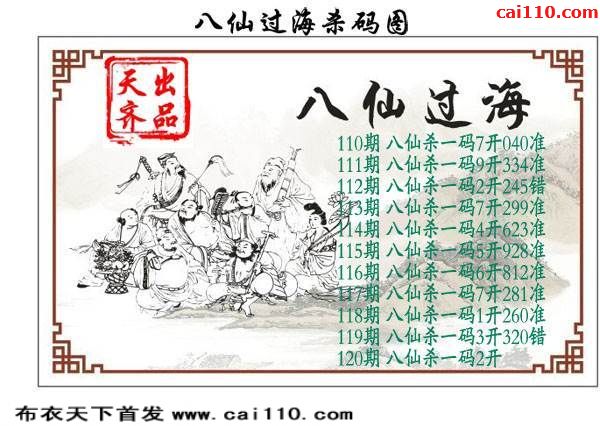 八仙过海杀码图
cai110.com
天出
齐品
八仙过海
110期 八仙杀一码7开040准
111期 八仙杀一码9开334准
112期 八仙杀一码2开245错
113期 八仙杀一码7开299准
114期 八仙杀一码4开623准
115期 八仙杀一码5开928准
116期 八仙杀一码6开812准
117期 八仙杀一码7开281准
118期 八仙杀一码1开260准
119期 八仙杀一码3开320错
120期 八仙杀一码2开
布衣天下首发 www.cai110.com